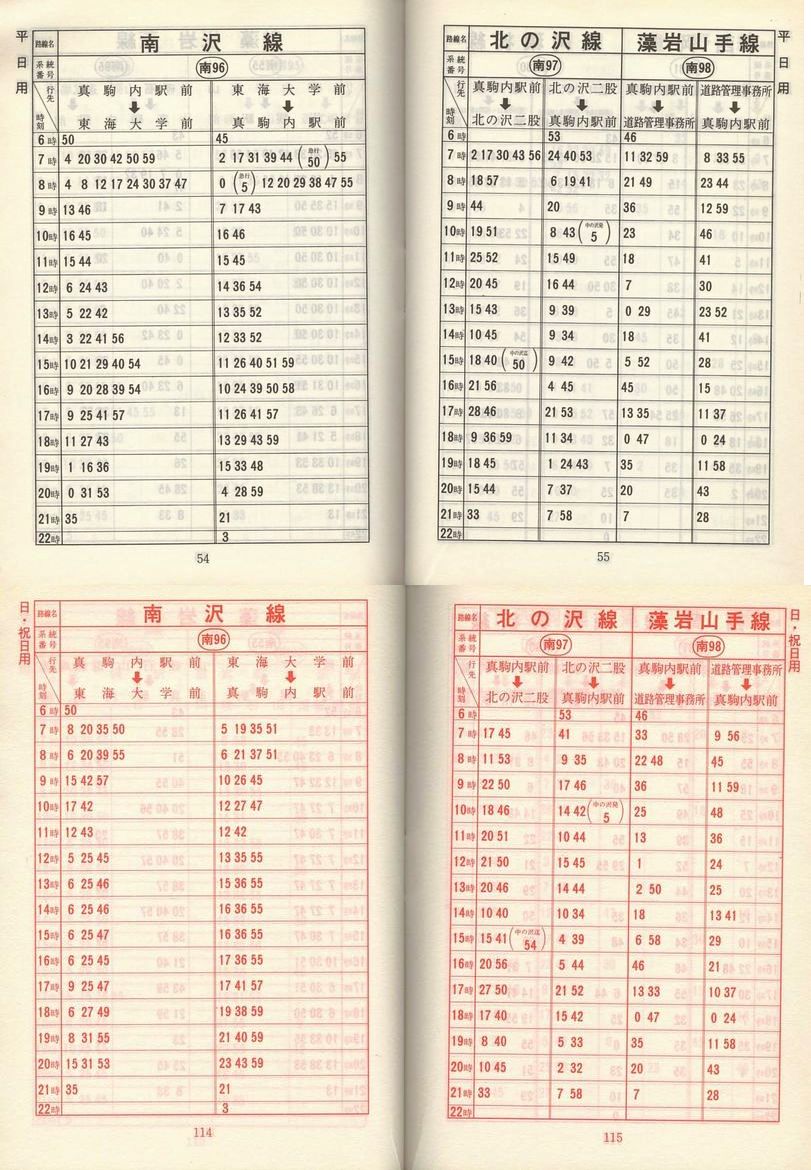 平日用
路線名 南沢線
系統番号 南96
行先 時刻 真駒内駅前 東海大学前
東海大学前 真駒内駅前
6時 50 45
7時 4 20 30 42 50 59 2 17 31 39 44 (急行 50) 55
8時 4 8 12 17 24 30 37 47 0 (急行 5) 12 20 29 38 47 55
9時 13 46 7 17 43
10時 16 45 16 46
11時 15 44 15 45
12時 6 24 43 14 36 54
13時 5 22 42 13 35 52
14時 3 22 41 56 12 33 52
15時 10 21 29 40 54 11 26 40 51 59
16時 9 20 28 39 54 10 24 39 50 58
17時 9 25 41 57 11 26 41 57
18時 11 27 43 13 29 43 59
19時 1 16 36 15 33 48
20時 0 31 53 4 28 59
21時 35 21
22時 3
54
平日用
路線名 北の沢線 藻岩山手線
系統番号 南97 南98
行先 時刻 真駒内駅前 北の沢二股 真駒内駅前 道路管理事務所
北の沢二股 真駒内駅前 道路管理事務所 真駒内駅前
6時 53 46
7時 2 17 30 43 56 24 40 53 11 32 59 8 33 55
8時 18 57 6 19 41 21 49 23 44
9時 44 20 36 12 59
10時 19 51 8 43 (中の沢発 5) 23 46
11時 25 52 15 49 18 41
12時 20 45 16 44 7 30
13時 15 43 9 39 0 29 23 52
14時 10 45 9 34 18 41
15時 18 40 (中の沢迄 50) 9 42 5 52 28
16時 21 56 4 45 45 15
17時 28 46 21 53 13 35 11 37
18時 9 36 59 11 34 0 47 0 24
19時 18 45 1 24 43 35 11 58
20時 15 44 7 37 20 43
21時 33 7 58 7 28
22時
55
日・祝日用
路線名 南沢線
系統番号 南96
行先 時刻 真駒内駅前 東海大学前
東海大学前 真駒内駅前
6時 50
7時 8 20 35 50 5 19 35 51
8時 6 20 39 55 6 21 37 51
9時 15 42 57 10 26 45
10時 17 42 12 27 47
11時 12 43 12 42
12時 5 25 45 13 35 55
13時 6 25 46 15 36 55
14時 6 25 46 16 36 55
15時 6 25 47 16 36 55
16時 6 25 45 17 36 55
17時 9 25 47 17 41 57
18時 6 27 49 19 38 59
19時 8 31 55 21 40 59
20時 15 31 53 23 43 59
21時 35 21
22時 3
114
日・祝日用
路線名 北の沢線 藻岩山手線
系統番号 南97 南98
行先 時刻 真駒内駅前 北の沢二股 真駒内駅前 道路管理事務所
北の沢二股 真駒内駅前 道路管理事務所 真駒内駅前
6時 53 46
7時 17 45 41 33 9 56
8時 11 53 9 35 22 48 45
9時 22 50 17 46 36 11 59
10時 18 46 14 42 (中の沢発 5) 25 48
11時 20 51 10 44 13 36
12時 21 50 15 45 1 24
13時 20 46 14 44 2 50 25
14時 10 40 10 34 18 13 41
15時 15 41 (中の沢迄 54) 4 39 6 58 29
16時 20 56 5 44 46 21
17時 27 50 21 52 13 33 10 37
18時 17 40 15 42 0 47 0 24
19時 8 40 5 33 35 11 58
20時 10 45 2 32 20 43
21時 33 7 58 7 28
22時
115